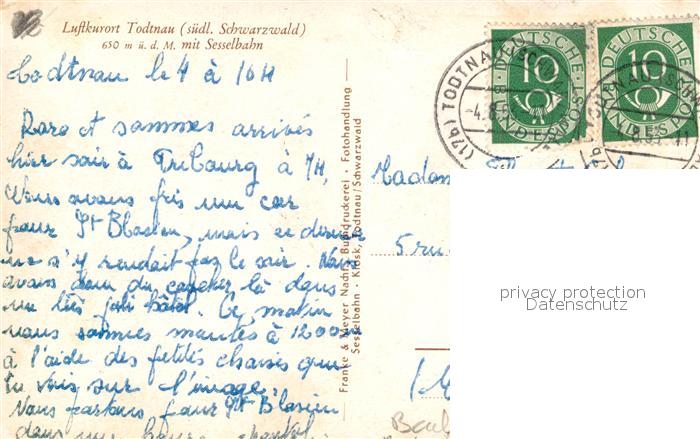 Luftkurort Todtnau (südl. Schwarzwald)
650 m ü. d. M. mit Sesselbahn
Todtnau le 4 à 10H
sommes arrivés
hier soir à Fribourg à 7H.
Nous avons pris un car
pour St Blasien, mais ce dernier
ne s'y rendait pas le soir. Nous
avons donc du coucher là dans
un très joli hôtel. Ce matin
nous sommes montés à 1200m
à l'aide des petites chaises que
tu vois sur l'image.
Nous partons pour St Blasien
dans une heure
Franke & Meyer Nachf., Buchdruckerei · Fotohandlung
Sesselbahn - Kiosk, Todtnau/Schwarzwald
DEUTSCHE BUNDESPOST
10
DEUTSCHE BUNDESPOST
10
(17b) TODTNAU
-4.8.53
Madame
5 rue
privacy protection
Datenschutz